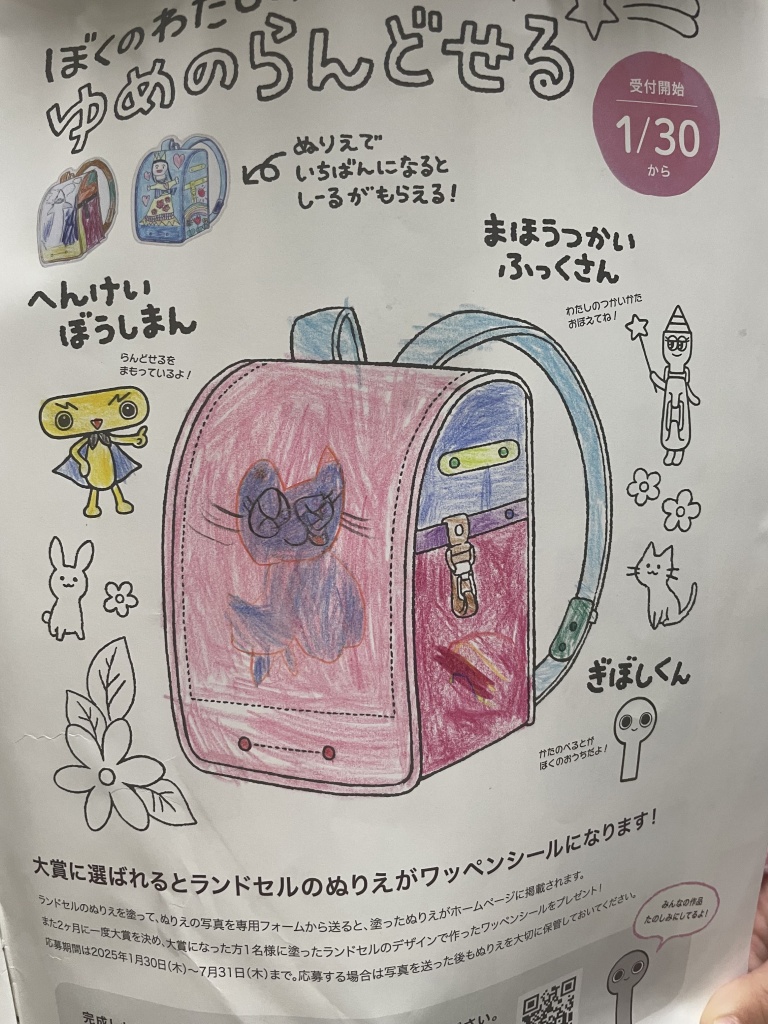 ぼくのわたし
ゆめのらんどせる
受付開始
1/30
から
ぬりえで
いちばんになると
しーるがもらえる!
まほうつかい
ふっくさん
わたしのつかいかた
おぼえてね!
へんけい
ぼうしまん
らんどせるを
まもっているよ!
ぎぼしくん
かたのべるとが
ぼくのおうちだよ!
大賞に選ばれるとランドセルのぬりえがワッペンシールになります!
ランドセルのぬりえを塗って、ぬりえの写真を専用フォームから送ると、塗ったぬりえがホームページに掲載されます。
また2ヶ月に一度大賞を決め、大賞になった方1名様に塗ったランドセルのデザインで作ったワッペンシールをプレゼント!
応募期間は2025年1月30日(木)〜7月31日(木)まで。応募する場合は写真を送った後もぬりえを大切に保管しておいてください。
みんなの作品
たのしみにしてるよ!
完成し
ください。